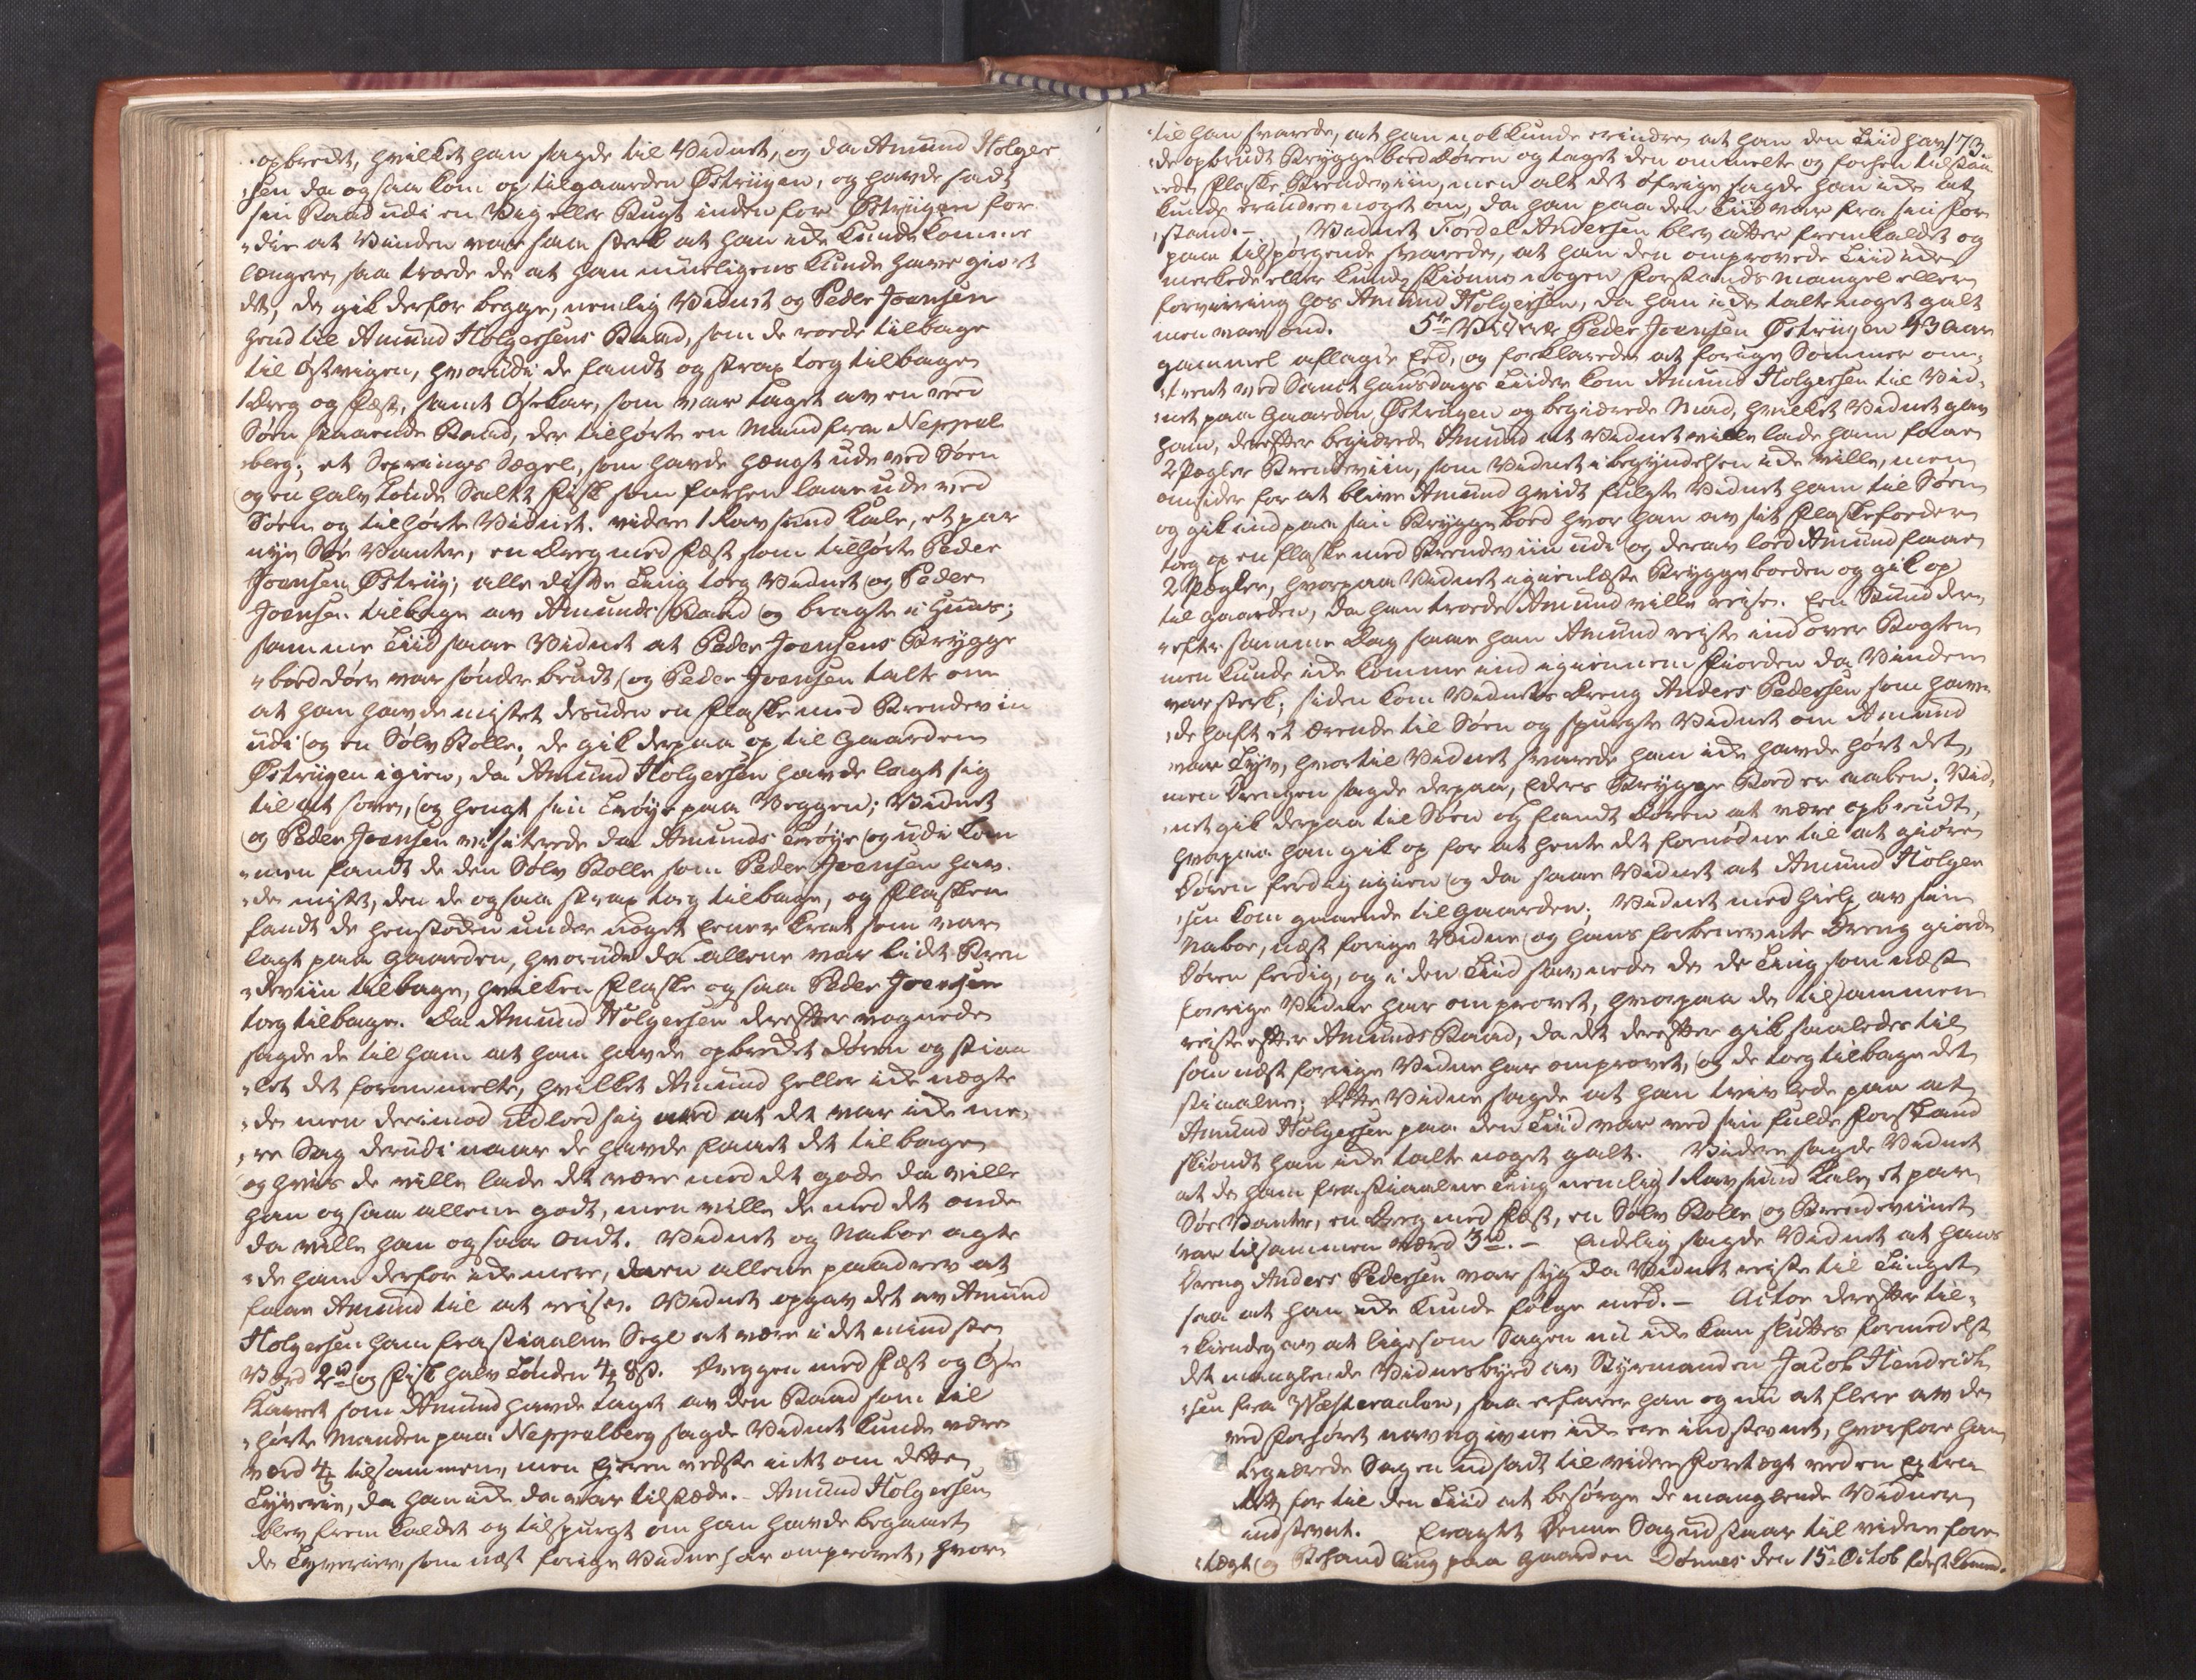 opbrudt, hvilket han sagde til Vidnet, og da Amund Holger
sen da ogsaa kom op til gaarden Østviigen, og havde sadt
sin Baad udi en Viig eller Bugt inden for Østviigen for
die at Vinden var saa sterk at han icke kunde komme
længere, saa troede de at han nueligens kunde have giort
det, de gik derfor begge, nemlig Vidnet og Peder Joensen
hend til Amund Holgersens Baad, som de roede tilbage
til Østvigen, hvorudi de fandt og strax toeg tilbage
1 Dreg og fæst, samt Øsekar, som var taget av en ved
Søen staaende Baad, der tilhørte en Mand fra Neppel
berg; et Seprings Segel, som havde hængt ude ved Søen
og en halv tønde Saltet fisk som forhen laae ude ved
Søen og tilhørte Vidnet. videre 1 Ravsund Kale, et par
nye Søe Vanter, en Dreg med fæst som tilhørte Peder
Joensen Østviig; alle disse Ting toeg Vidnet og Peder
Joensen tilbage av Amunds Baad og bragte i Huus;
samme Tiid saae Vidnet at Peder Joensens Brygge
boed døer var sønder brudt, og Peder Joensen talte om
at han havde mistet desuden en flaske med Brendeviin
udi og en Sølv Bolle; de gik derpaa op til Gaarden
Østviigen igien, da Amund Holgersen havde lagt sig
til at sove, og hengt sin Trøye paa Veggen; Vidnet
og Peder Joensen visiterede da Amunds Trøye og udi Lom
men fandt de den Sølv Bolle som Peder Joensen hav
de mistet, den de ogsaa strax toeg tilbage, og flasken
fandt de henstoden under noget Ener Krat som var
lagt paa Gaarden, hvorudi da allene var lidt Bren
deviin tilbage, hvilken flaske ogsaa Peder Joensen
toeg tilbage. Da Amund Holgersen derefter vognede
sagde de til ham at han havde opbrudt døren og stiaa
let det formelte, hvilket Amund heller icke nægte
de men derimod udloed sig med at det var icke me
re Sag derudi naar de havde faaet det tilbage
og hvis de ville lade det være med det gode da ville
han ogsaa allene godt, men ville de med det onde
da ville han ogsaa ondt. Vidnet og Naboe agte
de ham derfor icke mere, men allene paadrev at
faae Amund til at reise. Vidnet opgav det av Amund
Holgersen ham frastiaalne Segl at være i det mindste
Værd 2 rd og fisk halv tønden 4 8 s. Dreggen med fæst og Øse
karet som Amund havde taget av den Baad som til
hørte Manden paa Neppelberg sagde Vidnet kunde være
værd 4 tilsammen, men Eieren vidste intet om dette
Tyverie, da han icke da var tilstæde. – Amund Holgersen
blev frem kaldet og tilspurgt om han havde begaaet
de Tyverier, som næst forige Vidne har omprovet, hvor

173
til han svarede, at han nok kunde erindre at han den Tiid hav
de opbrudt Bryggeboed døren og taget den ommelte og forhen tilstaa
ede flaske Brendeviin, men alt det øfrige sagde han icke at
kunde erindre noget om, da han paa den Tiid var fra sin for
stand. – Vidnet Fordel Andersen blev atter fremkaldet og
paa tilspørgende svarede, at han den omprovede Tiid icke
merkede eller kunde skiønne nogen forstands mangel eller
forviring hos Amund Holgersen, da han icke talte noget galt
men var ond. 5te Vidne Peder Joensen Østviigen 43 Aar
gammel aflagde Eed, og forklarede at forige Sommer om
trent ved Sanct Hansdags Tiider kom Amund Holgersen til Vid
net paa Gaarden Østviigen og begierede Mad, hvilket Vidnet gav
ham, derefter begierede Amund at Vidnet ville lade ham faae
2 Pægler Brendeviin, som Vidnet i begyndelsen icke ville, men
omsider for at blive Amund qvidt fulgte Vidnet ham til Søen
og gik ind paa sin Bryggeboed hvor han av sit flaskefoeder
toeg op en flaske med Brendeviin udi og derav loed Amund faae
2 Pægler, hvorpaa Vidnet igien læste Bryggeboeden og gik op
til Gaarden, da han troede Amund ville reise. Een Stund der
efter samme Dag saae han Amund reiste ind over Bogten
men kunde icke komme ind igiennem fiorden da Vinden
var sterk; siden kom Vidnets Dreng Anders Pedersen som hav
de haft et ærende til Søen og spurgte Vidnet om Amund
var Tyv, hvortil Vidnet svarede han icke havde hørt det,
men Drengen sagde derpaa, Eders Brygge Boed er aaben; Vid
net gik derpaa til Søen og fandt døren at være opbrudt,
hvorpaa han gik op for at hente det fornødne til at giøre
døren ferdig igien og da saae Vidnet at Amund Holger
sen kom gaaende til Gaarden; Vidnet med hielp av sin
Naboe, næst forige Vidne og hans forbenevnte Dreng giorde
døren ferdig, og i den Tiid savnede de de Ting som næst
forrige Vidne har omprovet, hvorpaa de tilsammen
reiste efter Amunds Baad, da det derefter gik saaledes til
som næst forrige Vidne har omprovet, og de toeg tilbage det
stiaalne; dette Vidne sagde at han tvivlede paa at
Amund Holgersen paa den Tiid var ved sin fulde forstand
skiøndt han icke talte noget galt. Videre sagde Vidnet
at de ham frastiaalne Ting nemlig 1 Ravsund Kale, et par
Søe Vanter, en Dreg med fæst, en Sølv Bolle og Brendeviinet
var tilsammen værd 3 rd. – Endelig sagde Vidnet at hans
Dreng Anders Pedersen var syg da Vidnet reiste til Tinget
saa at han icke kunde følge med. – Actor derefter til
kiendegav at ligesom Sagen nu icke kan sluttes formedelst
det manglende Vidnesbyrd av Styrmanden Jacob Hendrich
sen fra Westeraalen, saa erfarer han og nu at flere av de
ved forhøret navngivne icke ere indstevnet, hvorfore han
begierede Sagen udsadt til videre foretægt ved en Extra
Ret for til den Tiid at besørge de manglende Vidner
indstevnt. Eragtet Denne Sag udstaar til videre fore
tægt og Behandling paa Gaarden Dønnes den 15. Octob førstkomend.